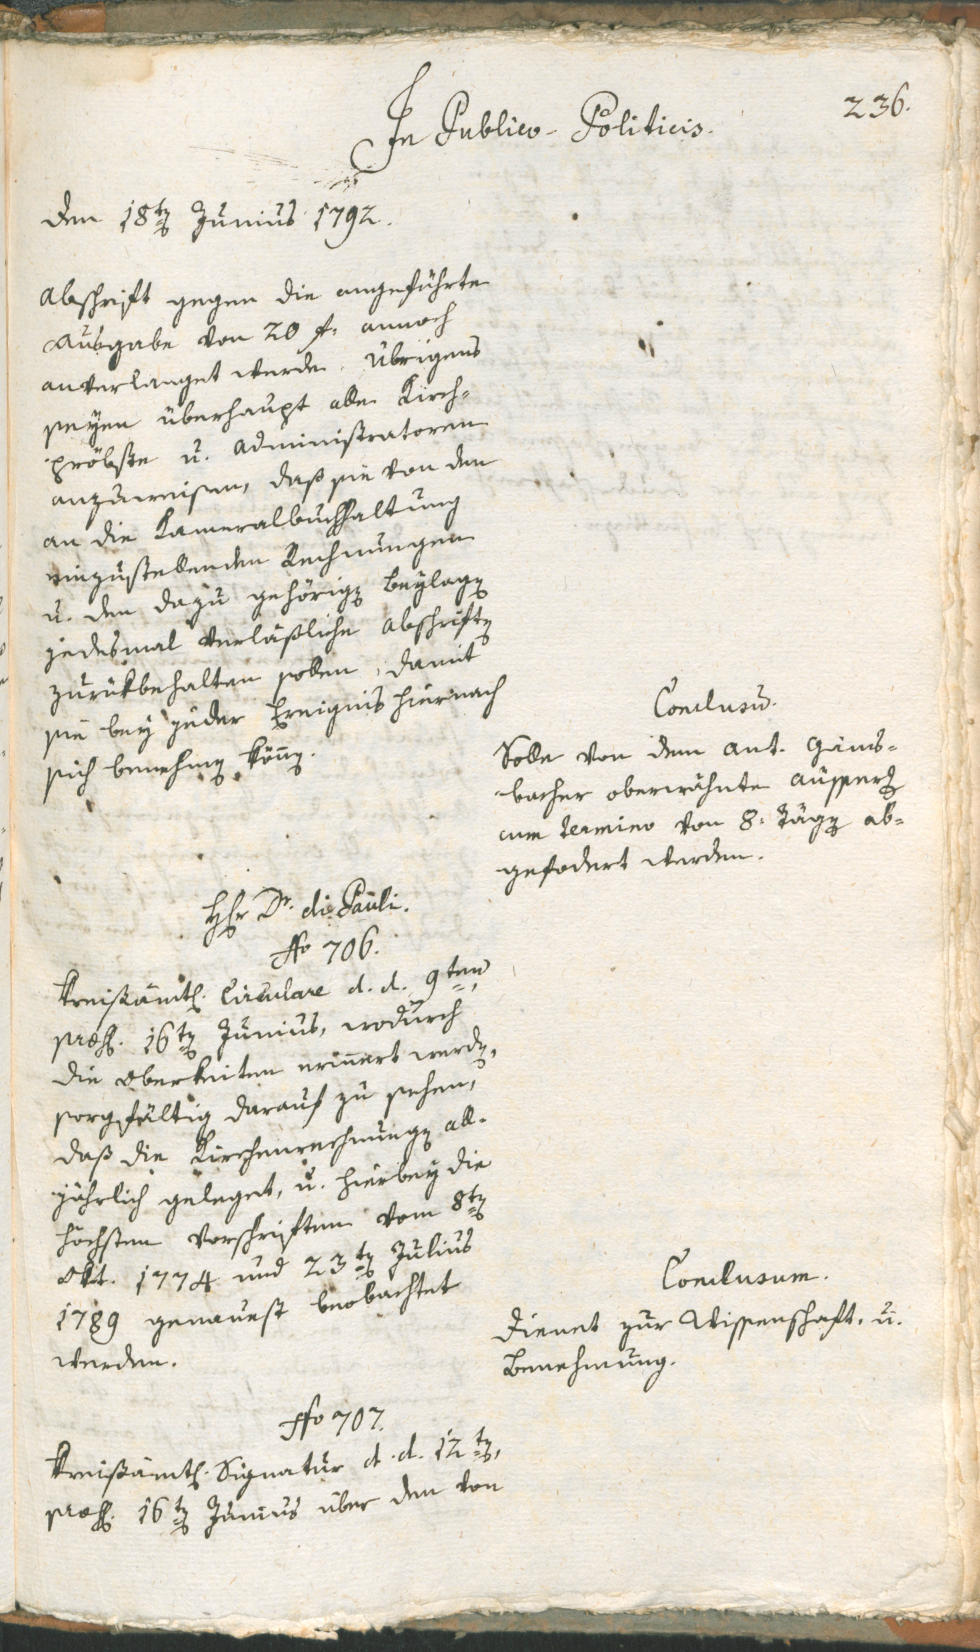 In Publico-Politicis.
236.
den 18ten Junius 1792.
Abschrift gegen die angeführte
Ausgabe von 20 f. annoch
anverlanget werde. Übrigens
seyen überhaupt alle Kirch-
pröbste u. Administratoren
anzuweisen, daß sie von den
an die Kameralbuchhaltung
einzustellenden Rechnungen
u. den dazu gehörigen Beylagen
jedesmal verläßliche Abschriften
zurükbehalten sollen, damit
sie bey jeder Ereignis hiernach
sich benehmen können.
Conclusum.
Solle von dem Ant. Gäns-
bacher oberwähnte Äusserung
cum termino von 8. Tägen ab-
gefodert werden.
Herr Dr. di Pauli.
No 706.
Kreisämtl. Circulare d. d. 9ten
præs. 16ten Junius, wodurch
die Oberkeiten erinnert werden,
sorgfältig darauf zu sehen,
daß die Kirchenrechnungen all-
jährlich geleget, u. hierbey die
höchsten Vorschriften vom 8ten
Okt. 1774 und 23ten Julius
1789 genauest beobachtet
werden.
Conclusum.
Dienet zur Wissenschaft, u.
Benehmung.
No 707.
Kreisämtl. Signatur d. d. 12ten,
præs. 16ten Junius über den von